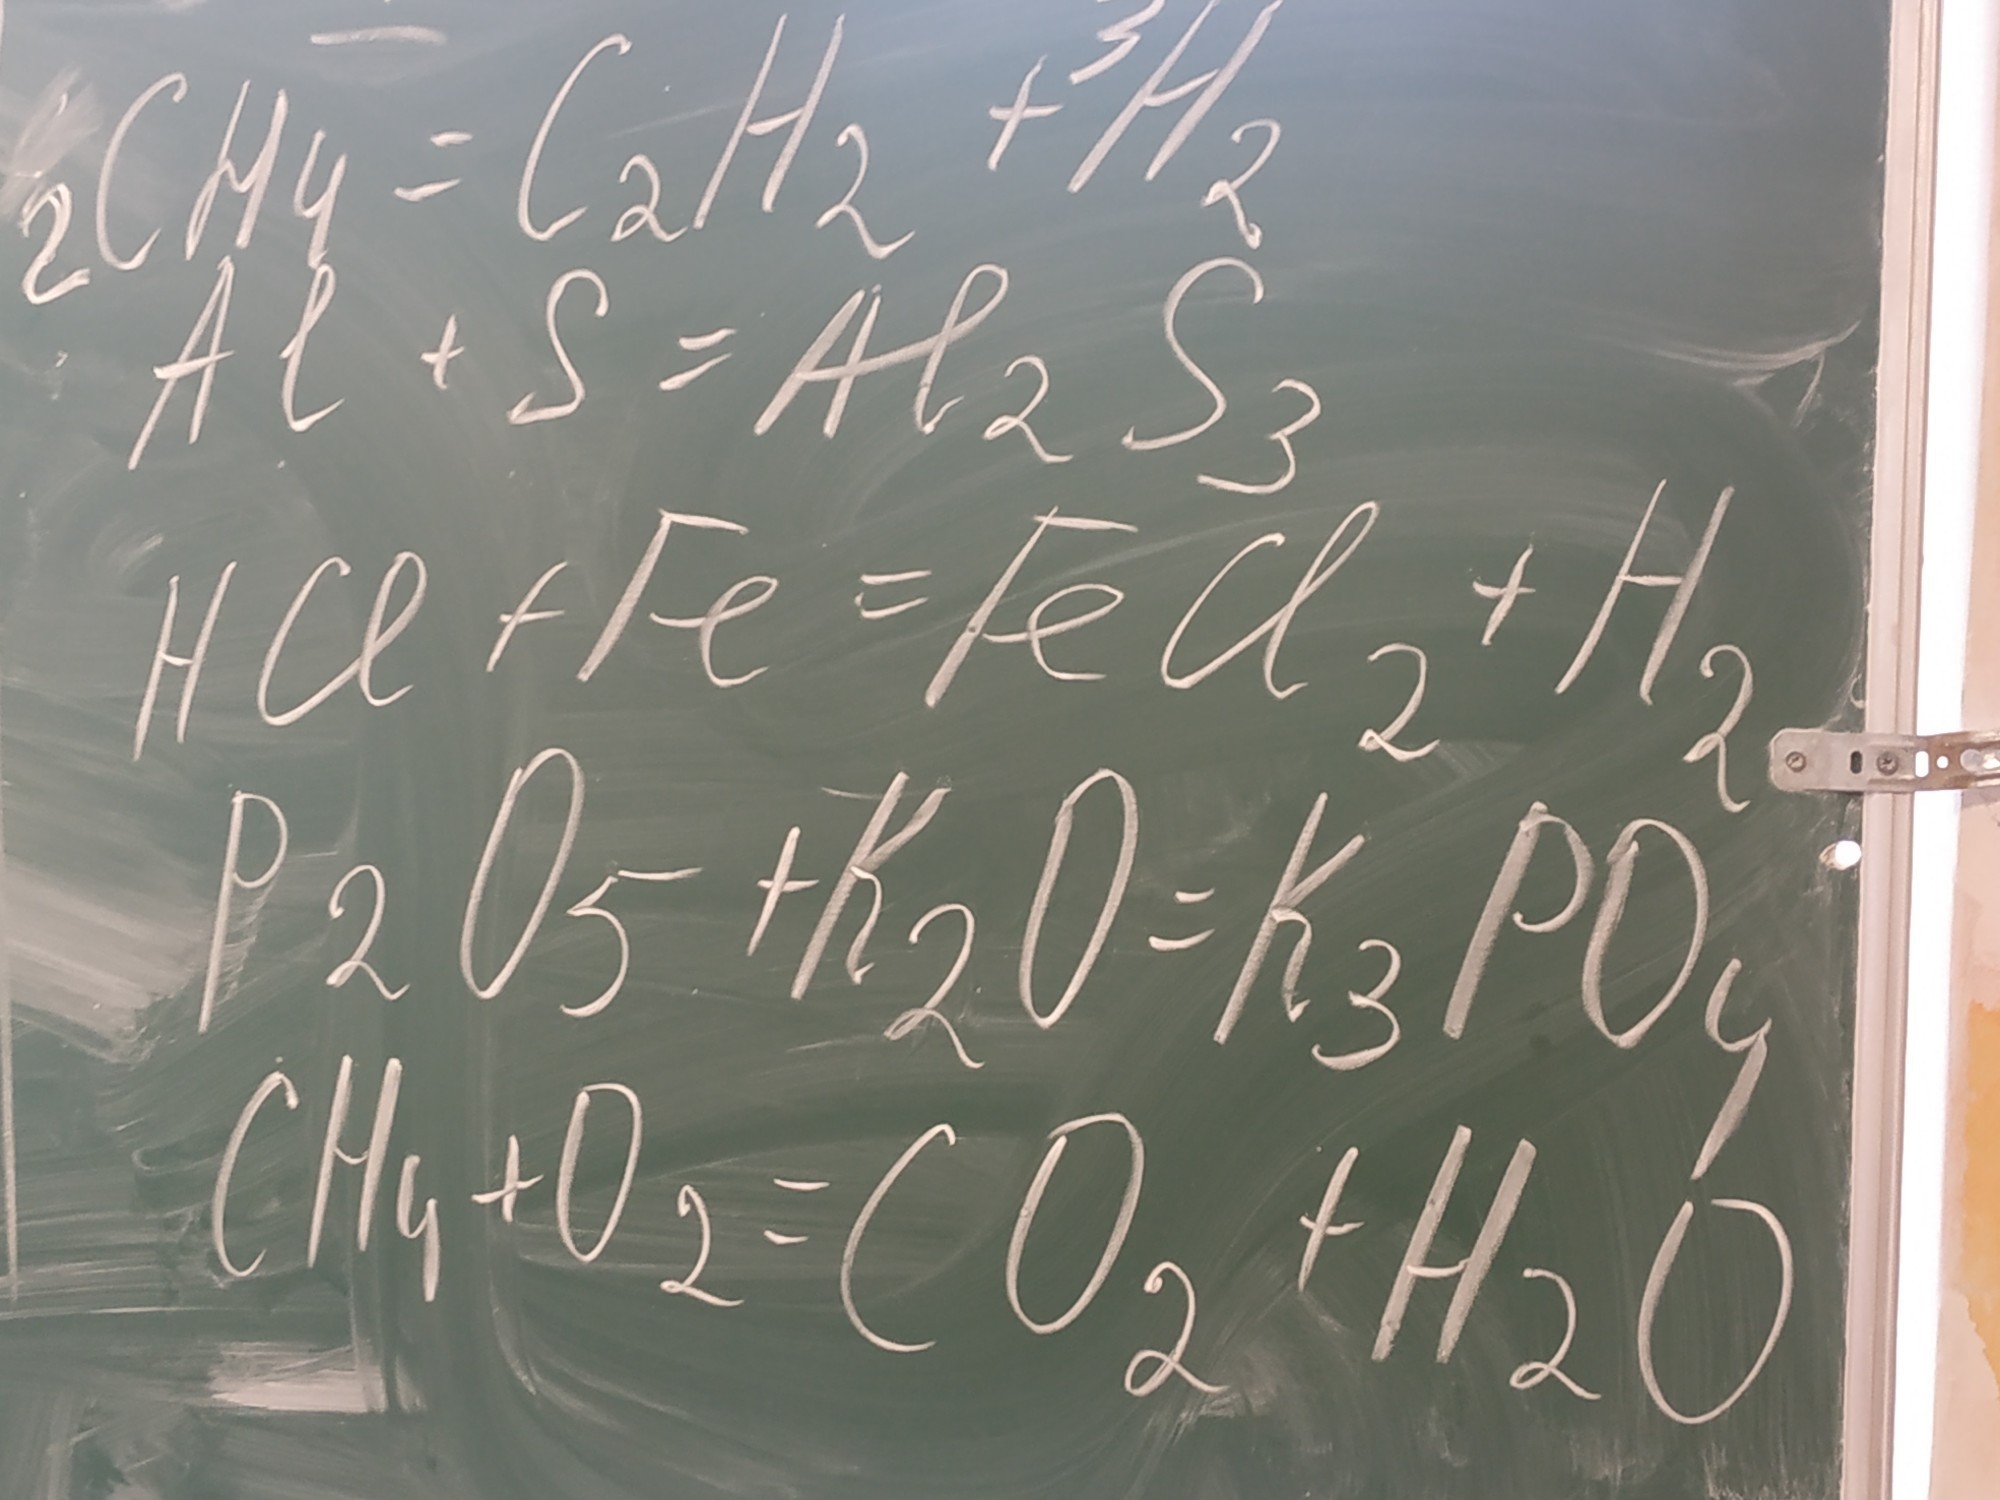 2CH4 = C2H2 + 3H2
Al + S = Al2S3
HCl + Fe = FeCl2 + H2
P2O5 + K2O = K3PO4
CH4 + O2 = CO2 + H2O